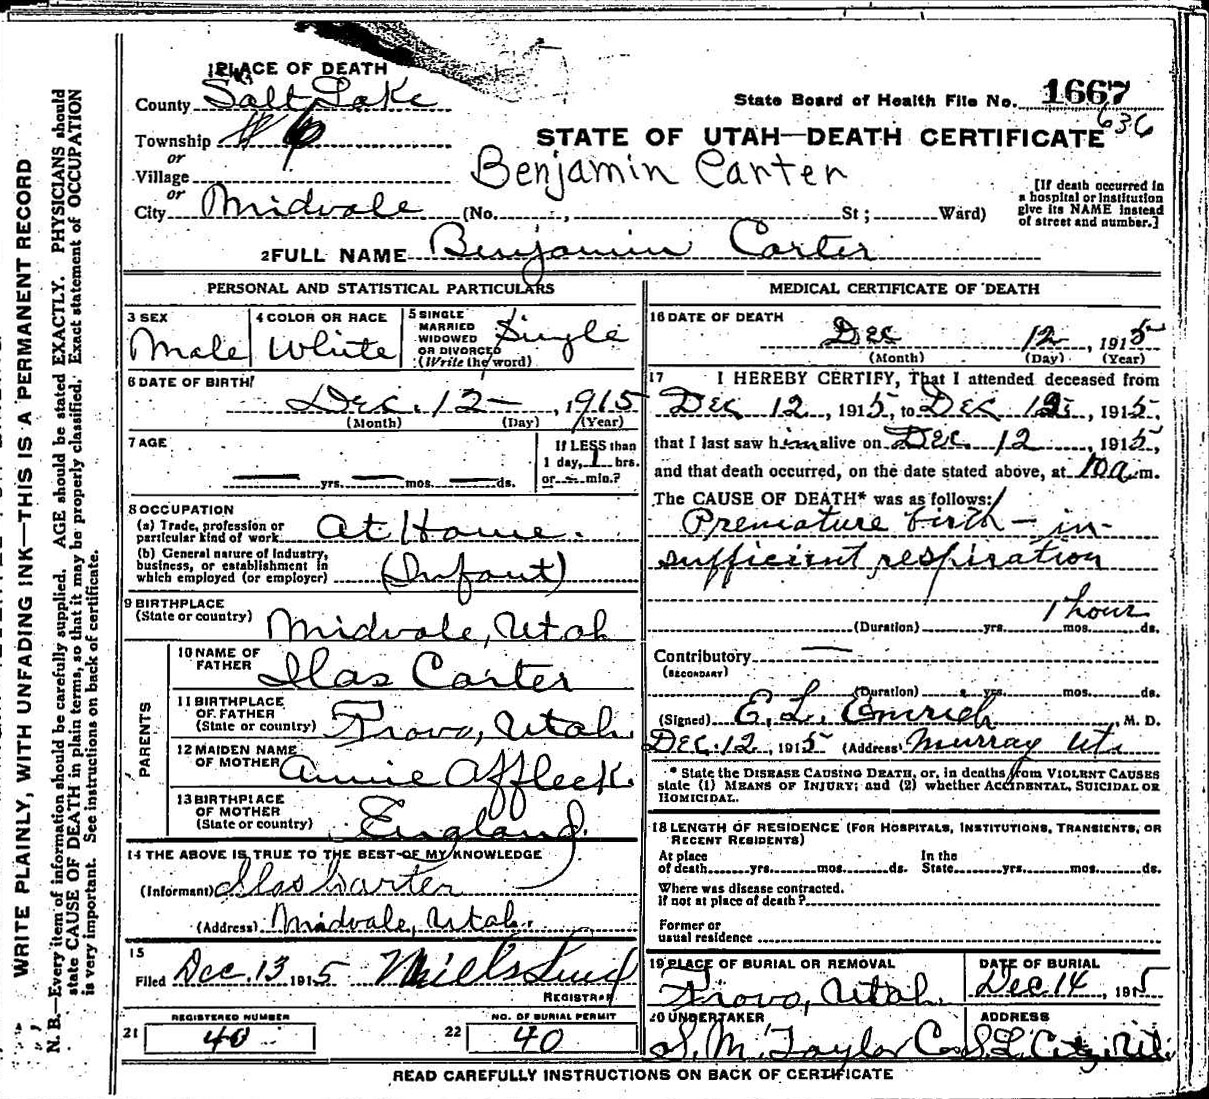 1 PLACE OF DEATH
County Salt Lake
State Board of Health File No. 1667
636
Township
STATE OF UTAH—DEATH CERTIFICATE
or
Village
Benjamin Carter
or
City Midvale (No. , St; Ward)
[If death occurred in
a hospital or institution
give its NAME instead
of street and number.]
2 FULL NAME Benjamin Carter
PERSONAL AND STATISTICAL PARTICULARS
3 SEX
Male
4 COLOR OR RACE
White
5 SINGLE
MARRIED
WIDOWED
OR DIVORCED
(Write the word)
Single
6 DATE OF BIRTH
Dec. 12 — , 1915
(Month) (Day) (Year)
7 AGE
yrs. mos. ds.
If LESS than
1 day, 1 hrs.
or min.?
8 OCCUPATION
(a) Trade, profession or
particular kind of work At Home.
(b) General nature of industry,
business, or establishment in
which employed (or employer) (Infant)
9 BIRTHPLACE
(State or country) Midvale, Utah
PARENTS
10 NAME OF
FATHER Ilas Carter
11 BIRTHPLACE
OF FATHER
(State or country) Provo, Utah.
12 MAIDEN NAME
OF MOTHER Annie Affleck.
13 BIRTHPLACE
OF MOTHER
(State or country) England.
14 THE ABOVE IS TRUE TO THE BEST OF MY KNOWLEDGE
(Informant) Ilas Carter
(Address) Midvale, Utah.
15
Filed Dec. 13 1915
REGISTRAR
21 REGISTERED NUMBER
40
22 NO. OF BURIAL PERMIT
40
MEDICAL CERTIFICATE OF DEATH
16 DATE OF DEATH
Dec 12 , 1915
(Month) (Day) (Year)
17 I HEREBY CERTIFY, That I attended deceased from
Dec 12 , 1915, to Dec 12 , 1915,
that I last saw him alive on Dec. 12 , 1915,
and that death occurred, on the date stated above, at 10 a m.
The CAUSE OF DEATH* was as follows:
Premature birth — in-
sufficient respiration
1 hour
(Duration) yrs. mos. ds.
Contributory —
(SECONDARY)
(Duration) yrs. mos. ds.
(Signed) E. L. Emrich , M. D.
Dec. 12 , 1915 (Address) Murray Ut.
* State the DISEASE CAUSING DEATH, or, in deaths from VIOLENT CAUSES
state (1) MEANS OF INJURY; and (2) whether ACCIDENTAL, SUICIDAL OR
HOMICIDAL.
18 LENGTH OF RESIDENCE (FOR HOSPITALS, INSTITUTIONS, TRANSIENTS, OR
RECENT RESIDENTS)
At place
of death yrs. mos. ds.
In the
State yrs. mos. ds.
Where was disease contracted.
if not at place of death?
Former or
usual residence
19 PLACE OF BURIAL OR REMOVAL
Provo, Utah.
DATE OF BURIAL
Dec. 14 , 1915
20 UNDERTAKER
S. M. Taylor Co
ADDRESS
S. L. City, Ut.
READ CAREFULLY INSTRUCTIONS ON BACK OF CERTIFICATE
WRITE PLAINLY, WITH UNFADING INK—THIS IS A PERMANENT RECORD
N. B.—Every item of information should be carefully supplied. AGE should be stated EXACTLY. PHYSICIANS should
state CAUSE OF DEATH in plain terms, so that it may be properly classified. Exact statement of OCCUPATION
is very important. See instructions on back of certificate.